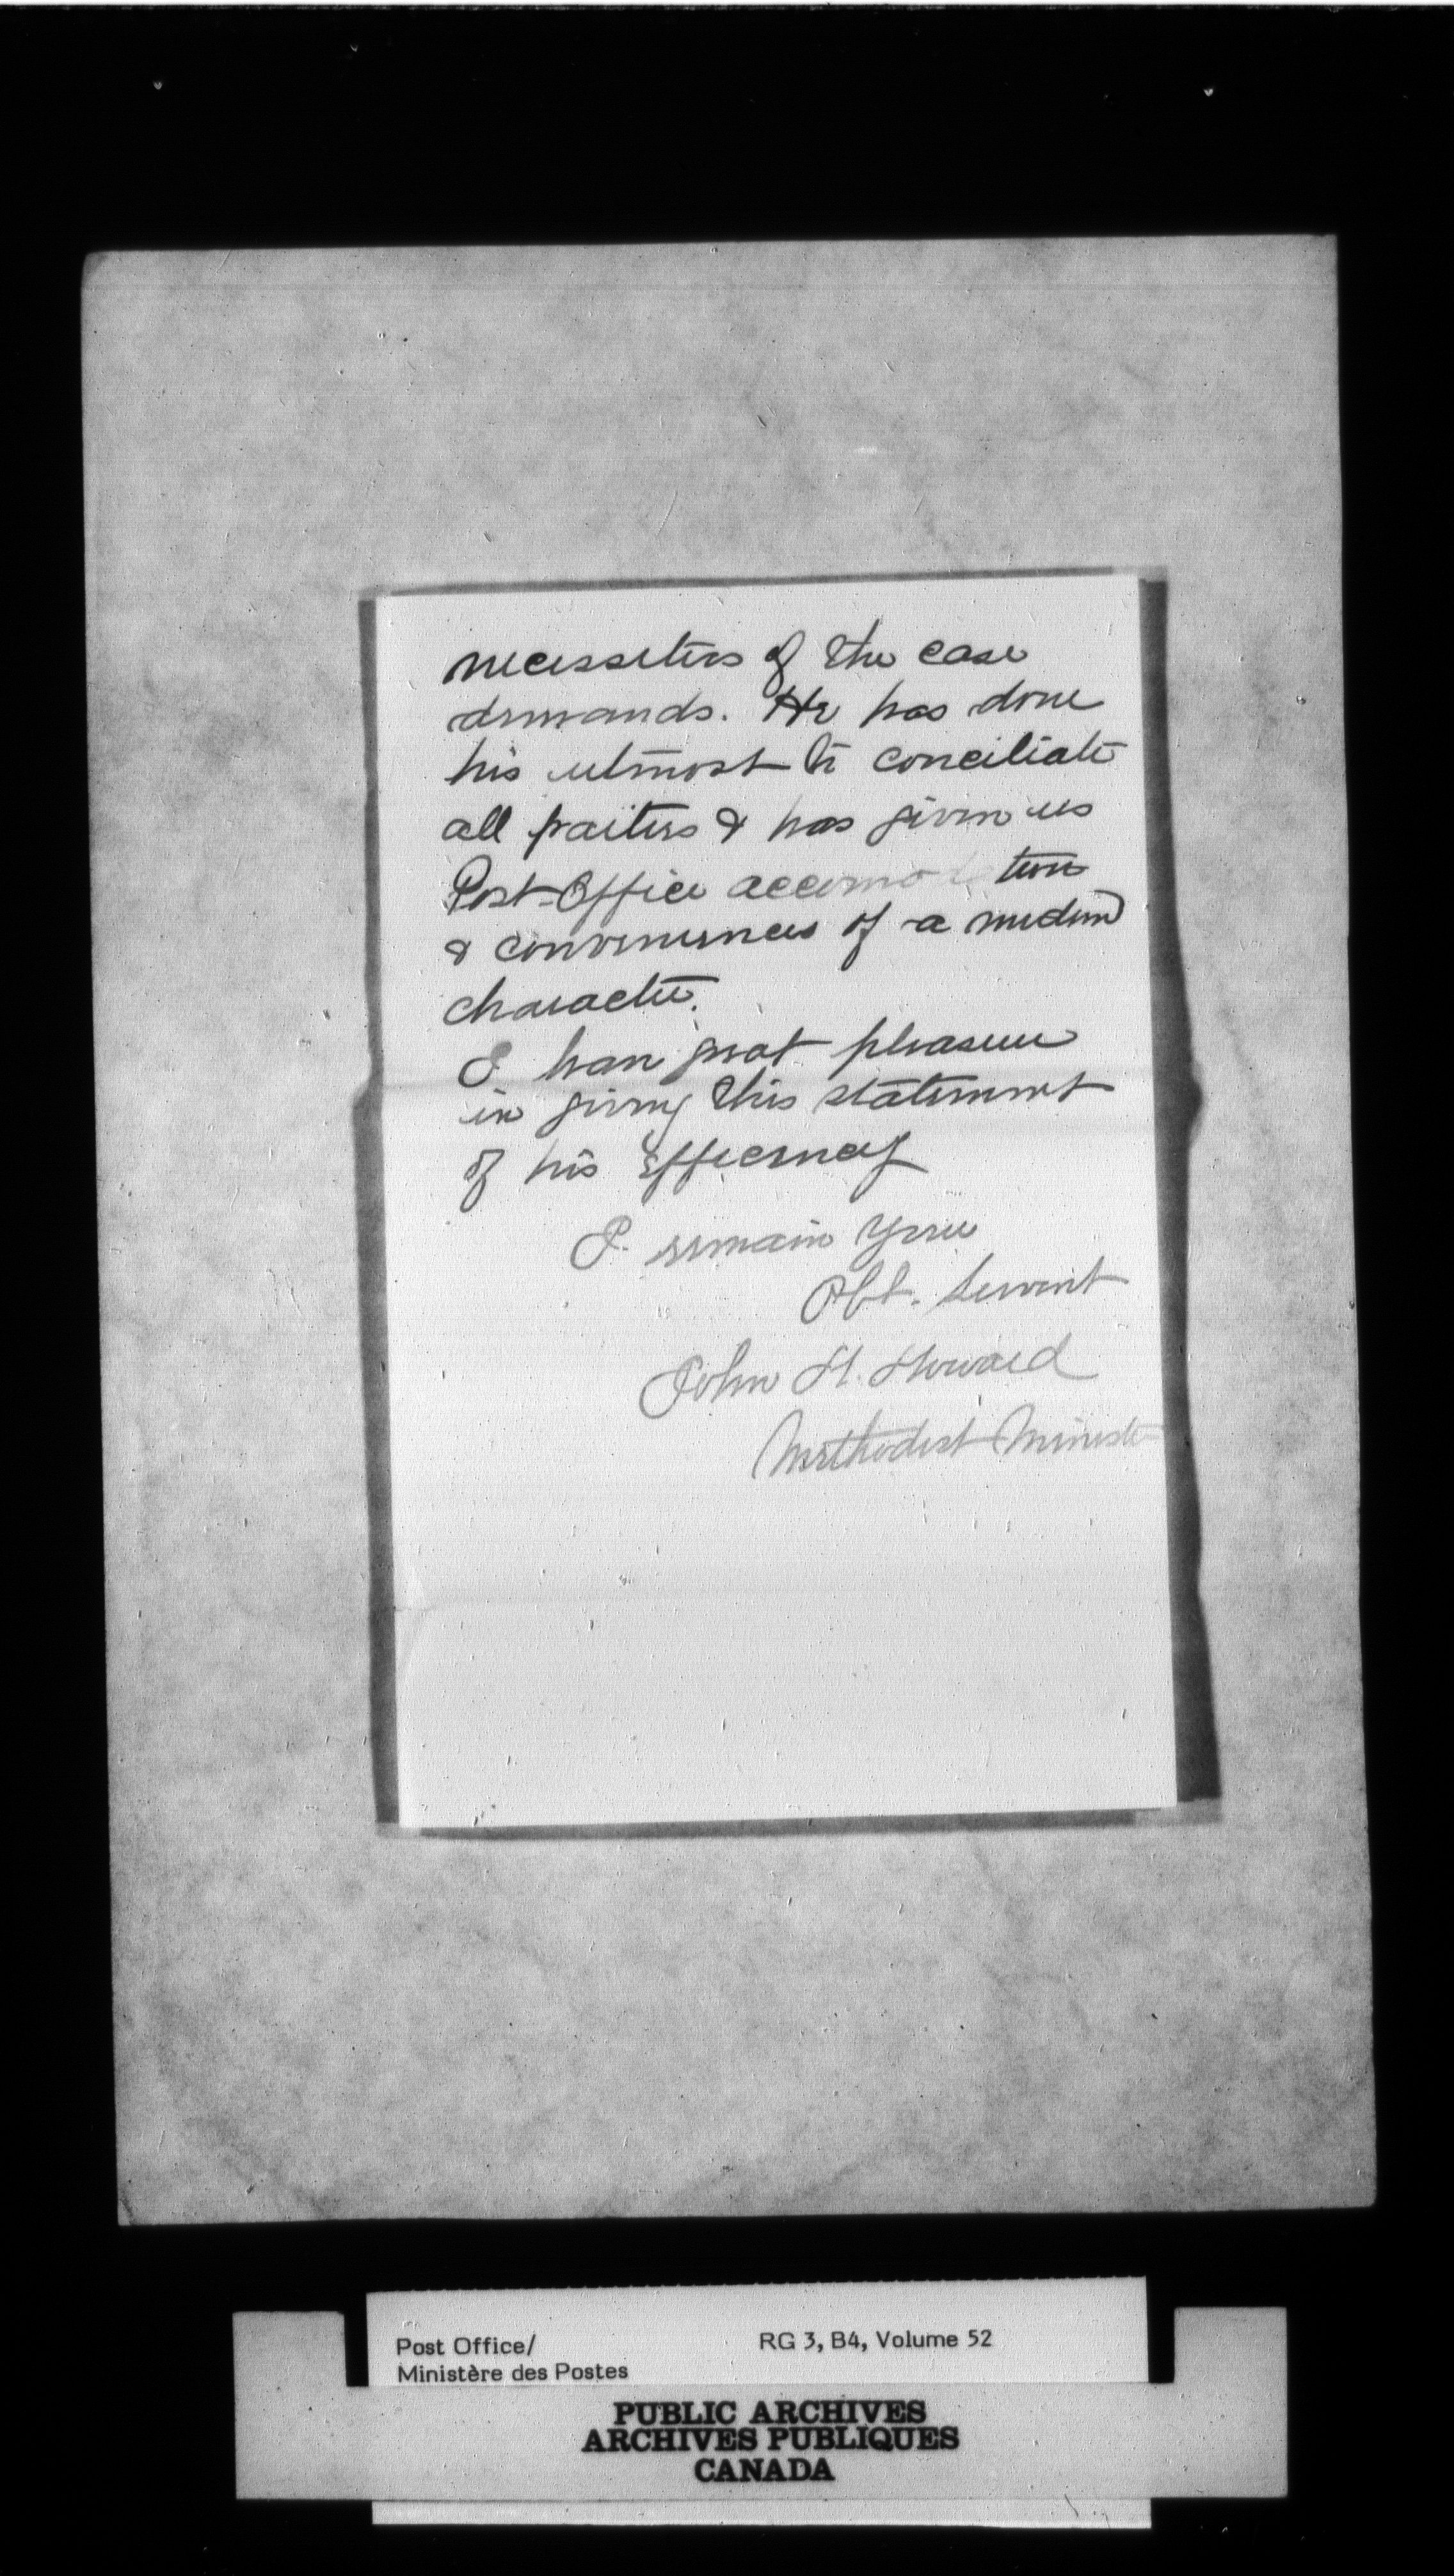 necessities of the case
demands. He has done
his utmost to conciliate
all parties & has given us
Post-Office accomodation
& conveniences of a modern
character.
I have great pleasure
in giving this statement
of his Efficiency
I remain your
Obt. Servant
John H. Howard
Methodist Minister
Post Office/
Ministère des Postes
RG 3, B4, Volume 52
PUBLIC ARCHIVES
ARCHIVES PUBLIQUES
CANADA